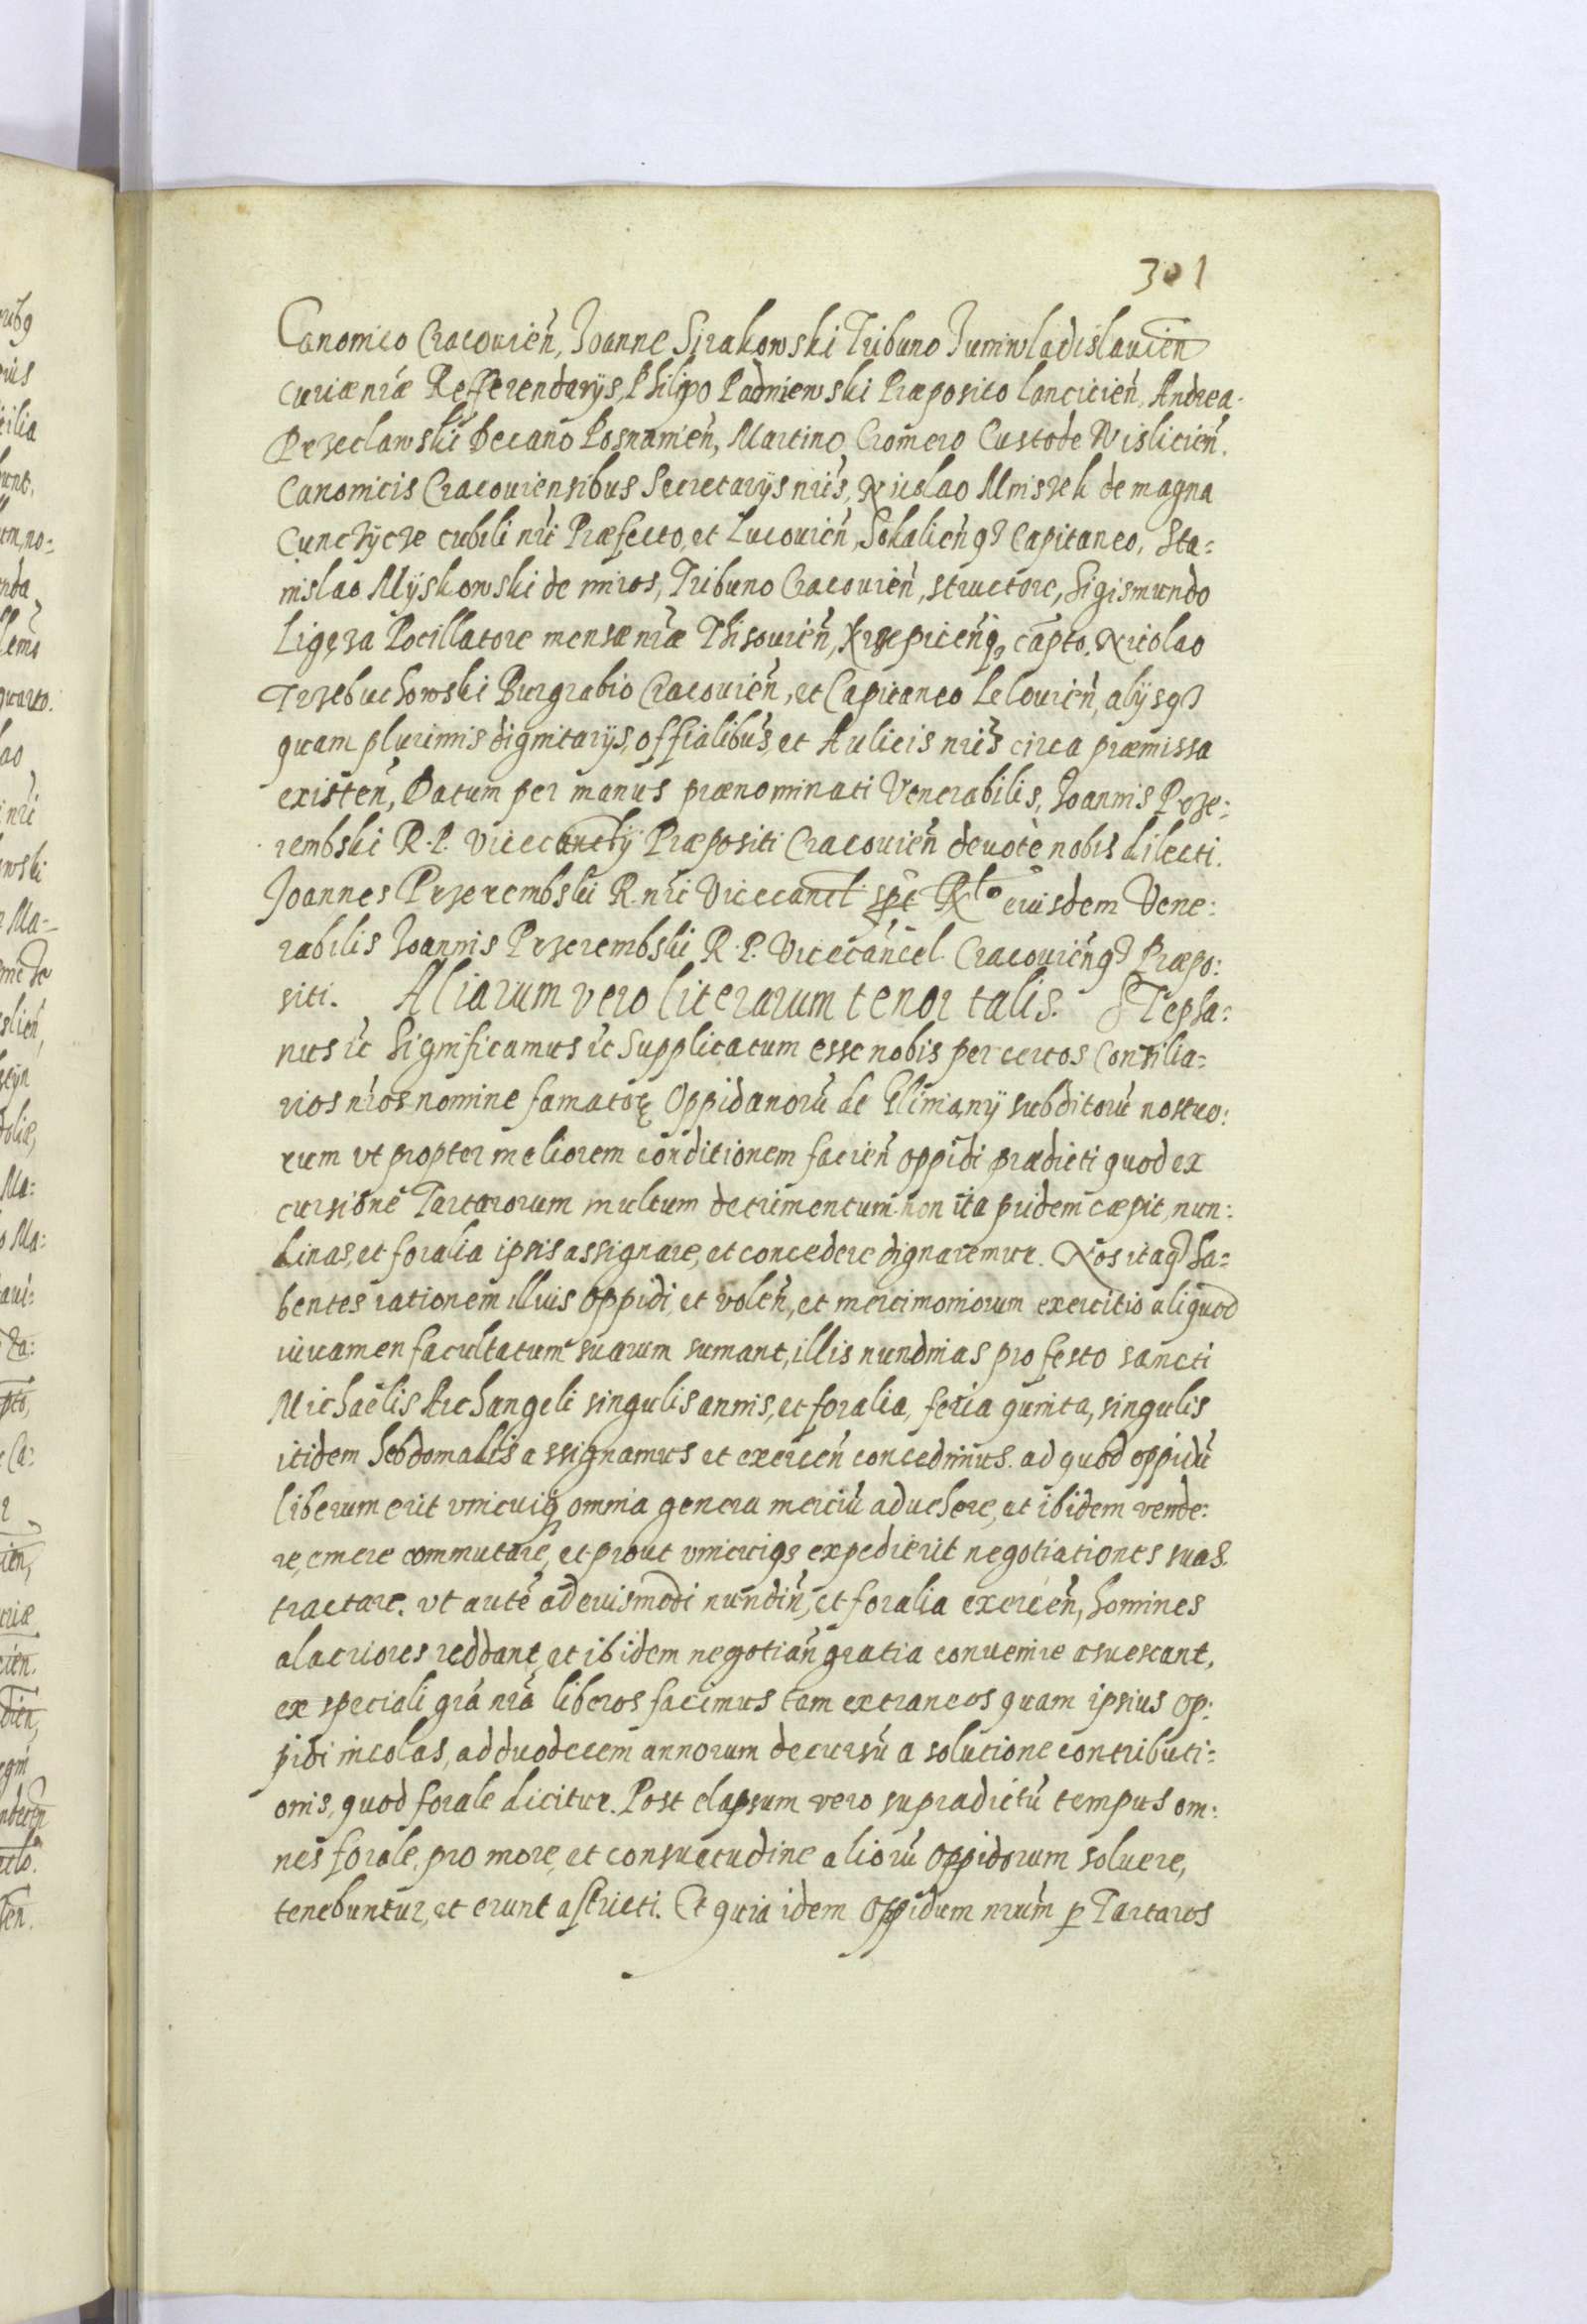 301
Canonico Cracouień, Joanne Sirakowski Tribuno Juniwladislauień
curiæ nr̃æ Refferendarijs, Philipo Padniewski Præposito lancicień, Andrea
Przeclawski Decano Posnanień, Martino Cromero Custode Wislicień.
Canonicis Cracouiensibus Secretarijs nrĩs, Nicolao Mniszek de magna
Cunczÿcze cubili nrĩ Præfecto, et Lucouień, Sokalieńqꝫ Capitaneo, Sta:
nislao Mÿskowski de miros, Tribuno Cracouień, structore, Sigismundo
Ligęza Pocillatore mensæ nr̃æ Zhisouień, Krzepiceńq, capto. Nicolao
Trzebuchowski Burgrabio Cracouień, et Capitaneo Lelouień, alijsqꝫ
quam plurimis dignitarijs, offialibus, et Aulicis nrĩs circa præmissa
existeń, Datum per manus prænominati Venerabilis, Joannis Prze:
rembski R. P. Vicecanclÿ Præpositi Cracouień deuotè nobis dilecti.
Joannes Przerembski R. nrĩ Vicecancl. spt Rlo eiusdem Vene:
rabilis Joannis Przerembski R. P. Vicecancel. Cracouieńqꝫ Præpo:
siti. Aliarum vero literarum tenor talis. STepha:
nus ꝛc Significamus ꝛc Supplicatum esse nobis per certos Consilia:
rios nr̃os nomine famatoꝝ Oppidanorũ de Glinianÿ subditorũ nostro:
rum vt propter meliorem conditionem facień oppidi prædicti quod ex
cursione Tartarorum multum detrimentum non ita pridem cæpit, nun:
dinas, et foralia ipsis assignare, et concedere dignaremur. Nos itaqꝫ ha:
bentes rationem illius oppidi, et voleń, et mercimoniorum exercitio aliquod
iuuamen facultatum suarum sumant, illis nundinas pro festo sancti
Michaelis Archangeli singulis annis, et foralia, feria quinta, singulis
itidem hebdomadis assignamus et exerceń concedimus. ad quod oppidũ
liberum erit vnicuiq̨ omnia genera merciũ aduehere, et ibidem vende:
re, emere commutare, et prout vnicuiqꝫ expedierit negotiationes suas
tractare. vt autẽ ad eiusmodi nundiń, et foralia exerceń, homines
alacriores reddant, et ibidem negotiań gratia conuenire asuescant,
ex speciali grã nrã liberos facimus tam extraneos quam ipsius op:
pidi incolas, ad duodecem annorum decursũ a solutione contributi:
onis, quod forale dicitur. Post elapsum vero supradictũ tempus om:
nes forale, pro more, et consuetudine aliorũ oppidorum soluere,
tenebuntur, et erunt astricti. Et quia idem Oppidum nrũm ꝑ Tartaros